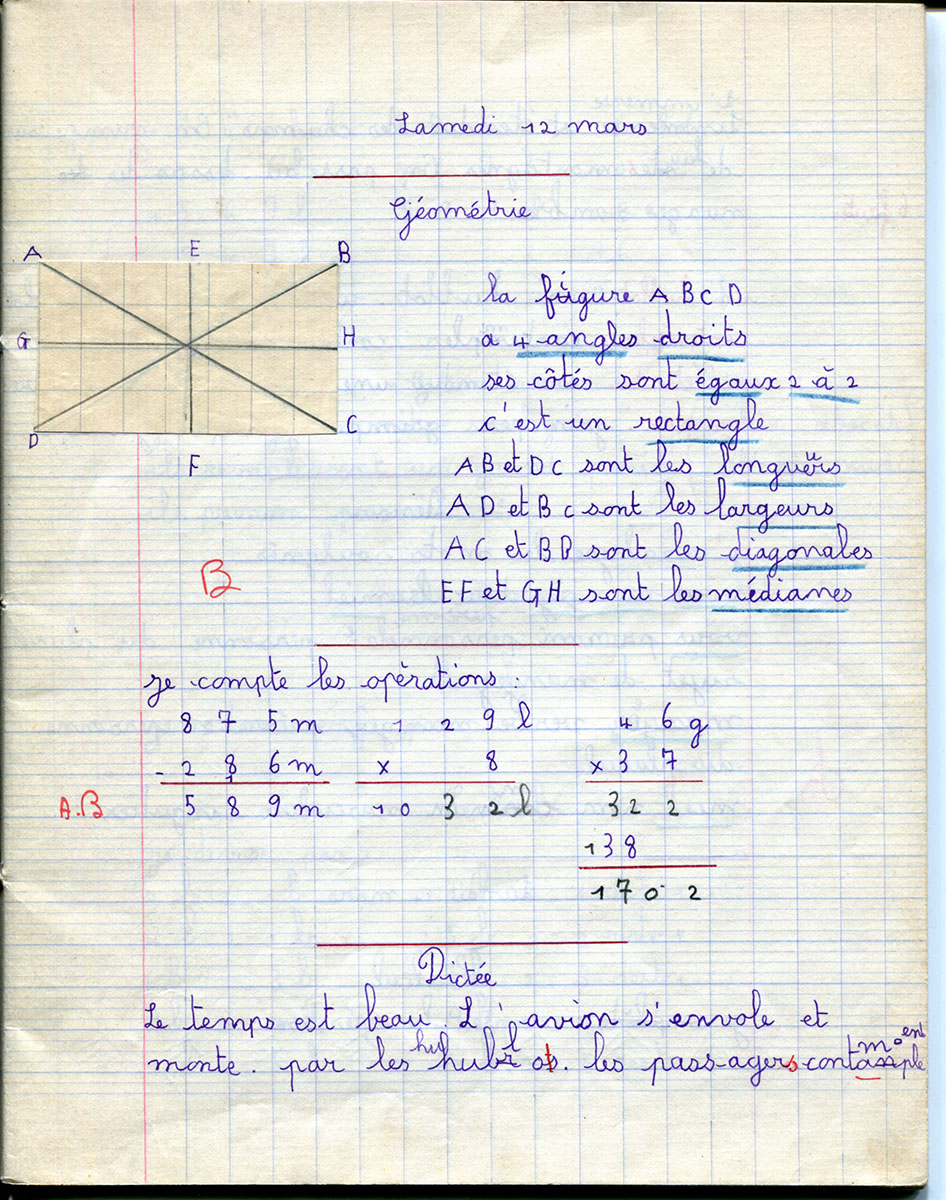 Samedi 12 mars
Géométrie
A E B
G H
D C
F
la figure A B C D
a 4 angles droits
ses côtés sont égaux 2 à 2
c'est un rectangle
AB et DC sont les longueurs
AD et BC sont les largeurs
AC et BD sont les diagonales
EF et GH sont les médianes
B
Je compte les opèrations :
8 7 5 m 1 2 9 l 4 6 g
- 2 8 6 m x 8 x 3 7
1
A.B 5 8 9 m 10 3 2 l 3 2 2
1 3 8
1 7 0 2
Dictée
Le temps est beau. L'avion s'envole et
monte. par les les passagers